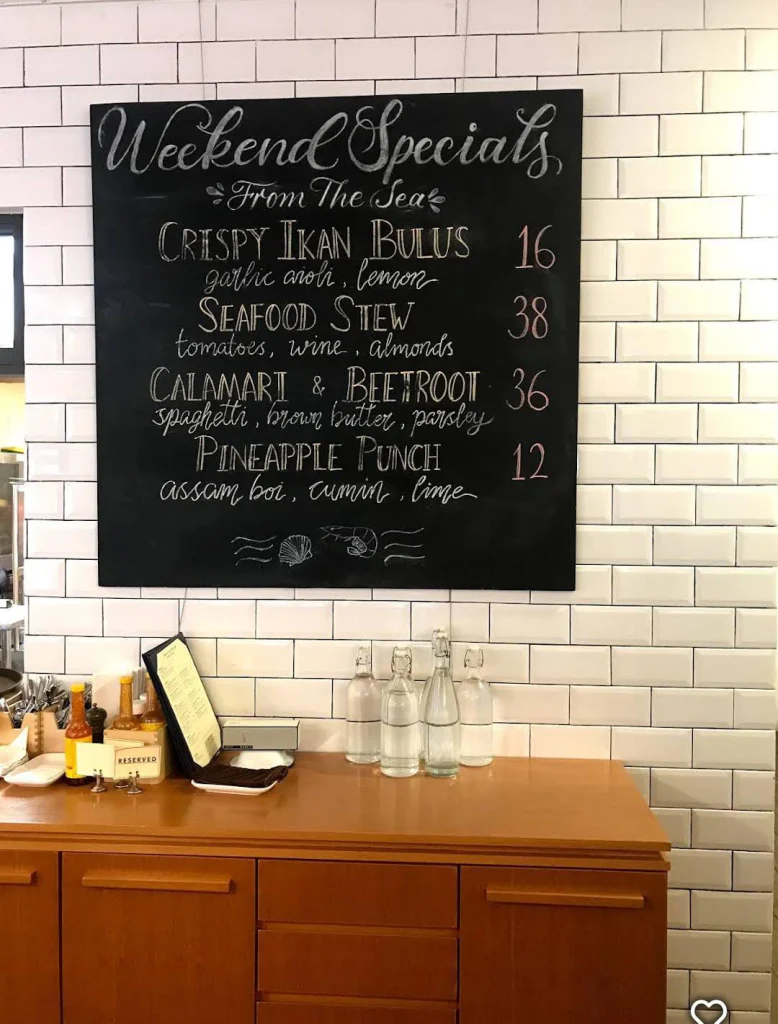 Weekend Specials
From The Sea
CRISPY IKAN BULUS 16
garlic aioli, lemon
SEAFOOD STEW 38
tomatoes, wine, almonds
CALAMARI & BEETROOT 36
spaghetti, brown butter, parsley
PINEAPPLE PUNCH 12
assam boi, cumin, lime
RESERVED